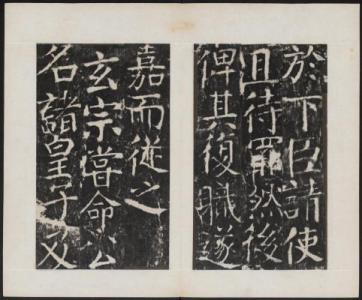 於下臣請使
且待罷然後
俾其復職遂
嘉而從之
玄宗嘗命公
名諸皇子又